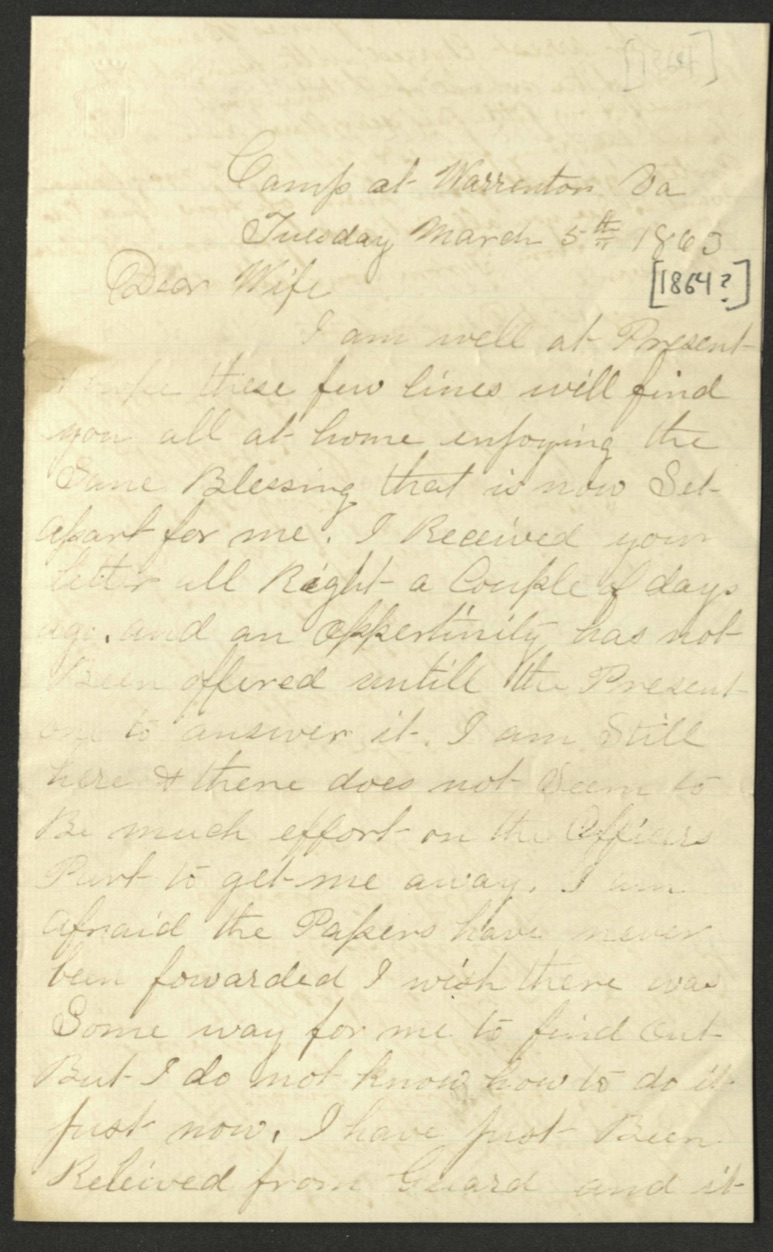 [1864]
Camp at Warrenton Va
Tuesday March 5th 1863
[1864?]
Dear Wife
I am well at Present
& hope these few lines will find
you all at home enjoying the
Same Blessing that is now Set
apart for me. I Received your
letter all Right a Couple of days
ago. and an oppertinity has not
Been offered untill the Present
one to answer it. I am Still
here & there does not Seem to
Be much effort on the Officers
Part to get me away. I am
afraid the Papers have never
been fowarded I wish there was
Some way for me to find out
But I do not know how to do it
just now. I have just Been
Releived from Guard and it